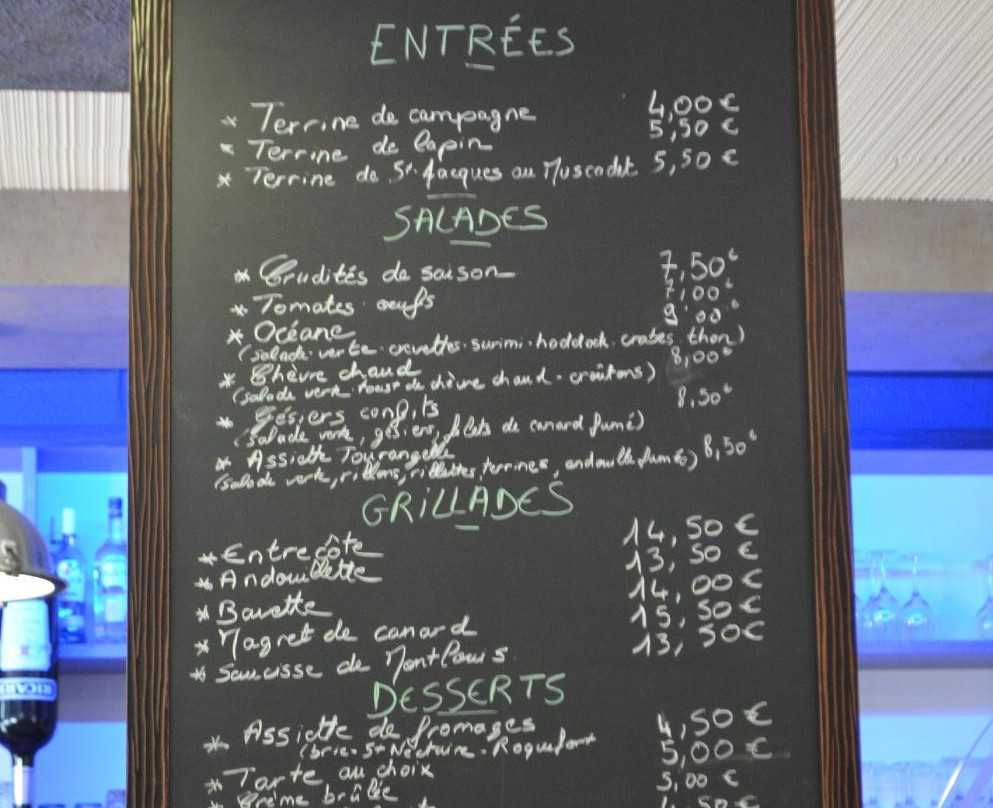 ENTRÉES
* Terrine de campagne 4,00 €
* Terrine de lapin 5,50 €
* Terrine de St. Jacques au Muscadet 5,50 €
SALADES
* Crudités de saison 7,50€
* Tomates oeufs 7,00€
* Océane 9,00€
(salade verte. crevettes. surimi. haddock. crabes, thon)
* Chèvre chaud 8,00€
(salade verte. toast de chèvre chaud - croûtons)
* Gésiers confits 8,50€
(salade verte, gésiers, filets de canard fumé)
* Assiette Tourangelle 8,50€
(salade verte, rillons, rillettes, terrines, andouille fumée)
GRiLLADES
* Entrecôte 14,50 €
* Andouillette 13,50 €
* Bavette 14,00 €
* Magret de canard 15,50 €
* Saucisse de MontLouis 13,50€
DESSERTS
* Assiette de fromages 4,50 €
(brie. St Nectaire. Roquefort
* Tarte au choix 5,00 €
* Crème brûlée 5,00 €
RICARD